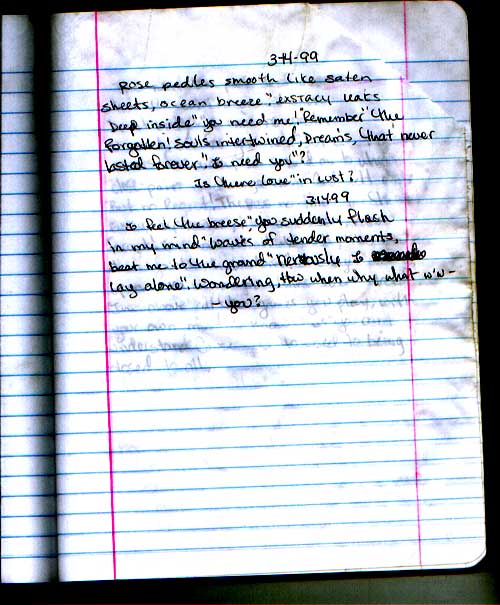 3-14-99
rose pedles smooth like saten
sheets, ocean breeze," exstacy waits
Deep inside" you need me! "Remember" the
forgotten! souls intertwined, Dreams, that never
lasted forever" I need you"?
Is there love" in Lust?
3-14-99
I feel the breese," you suddenly flash
in my mind" waves of tender moments,
beat me to the ground" nervously I
lay alone'. wondering, How when why what w'w -
- you?